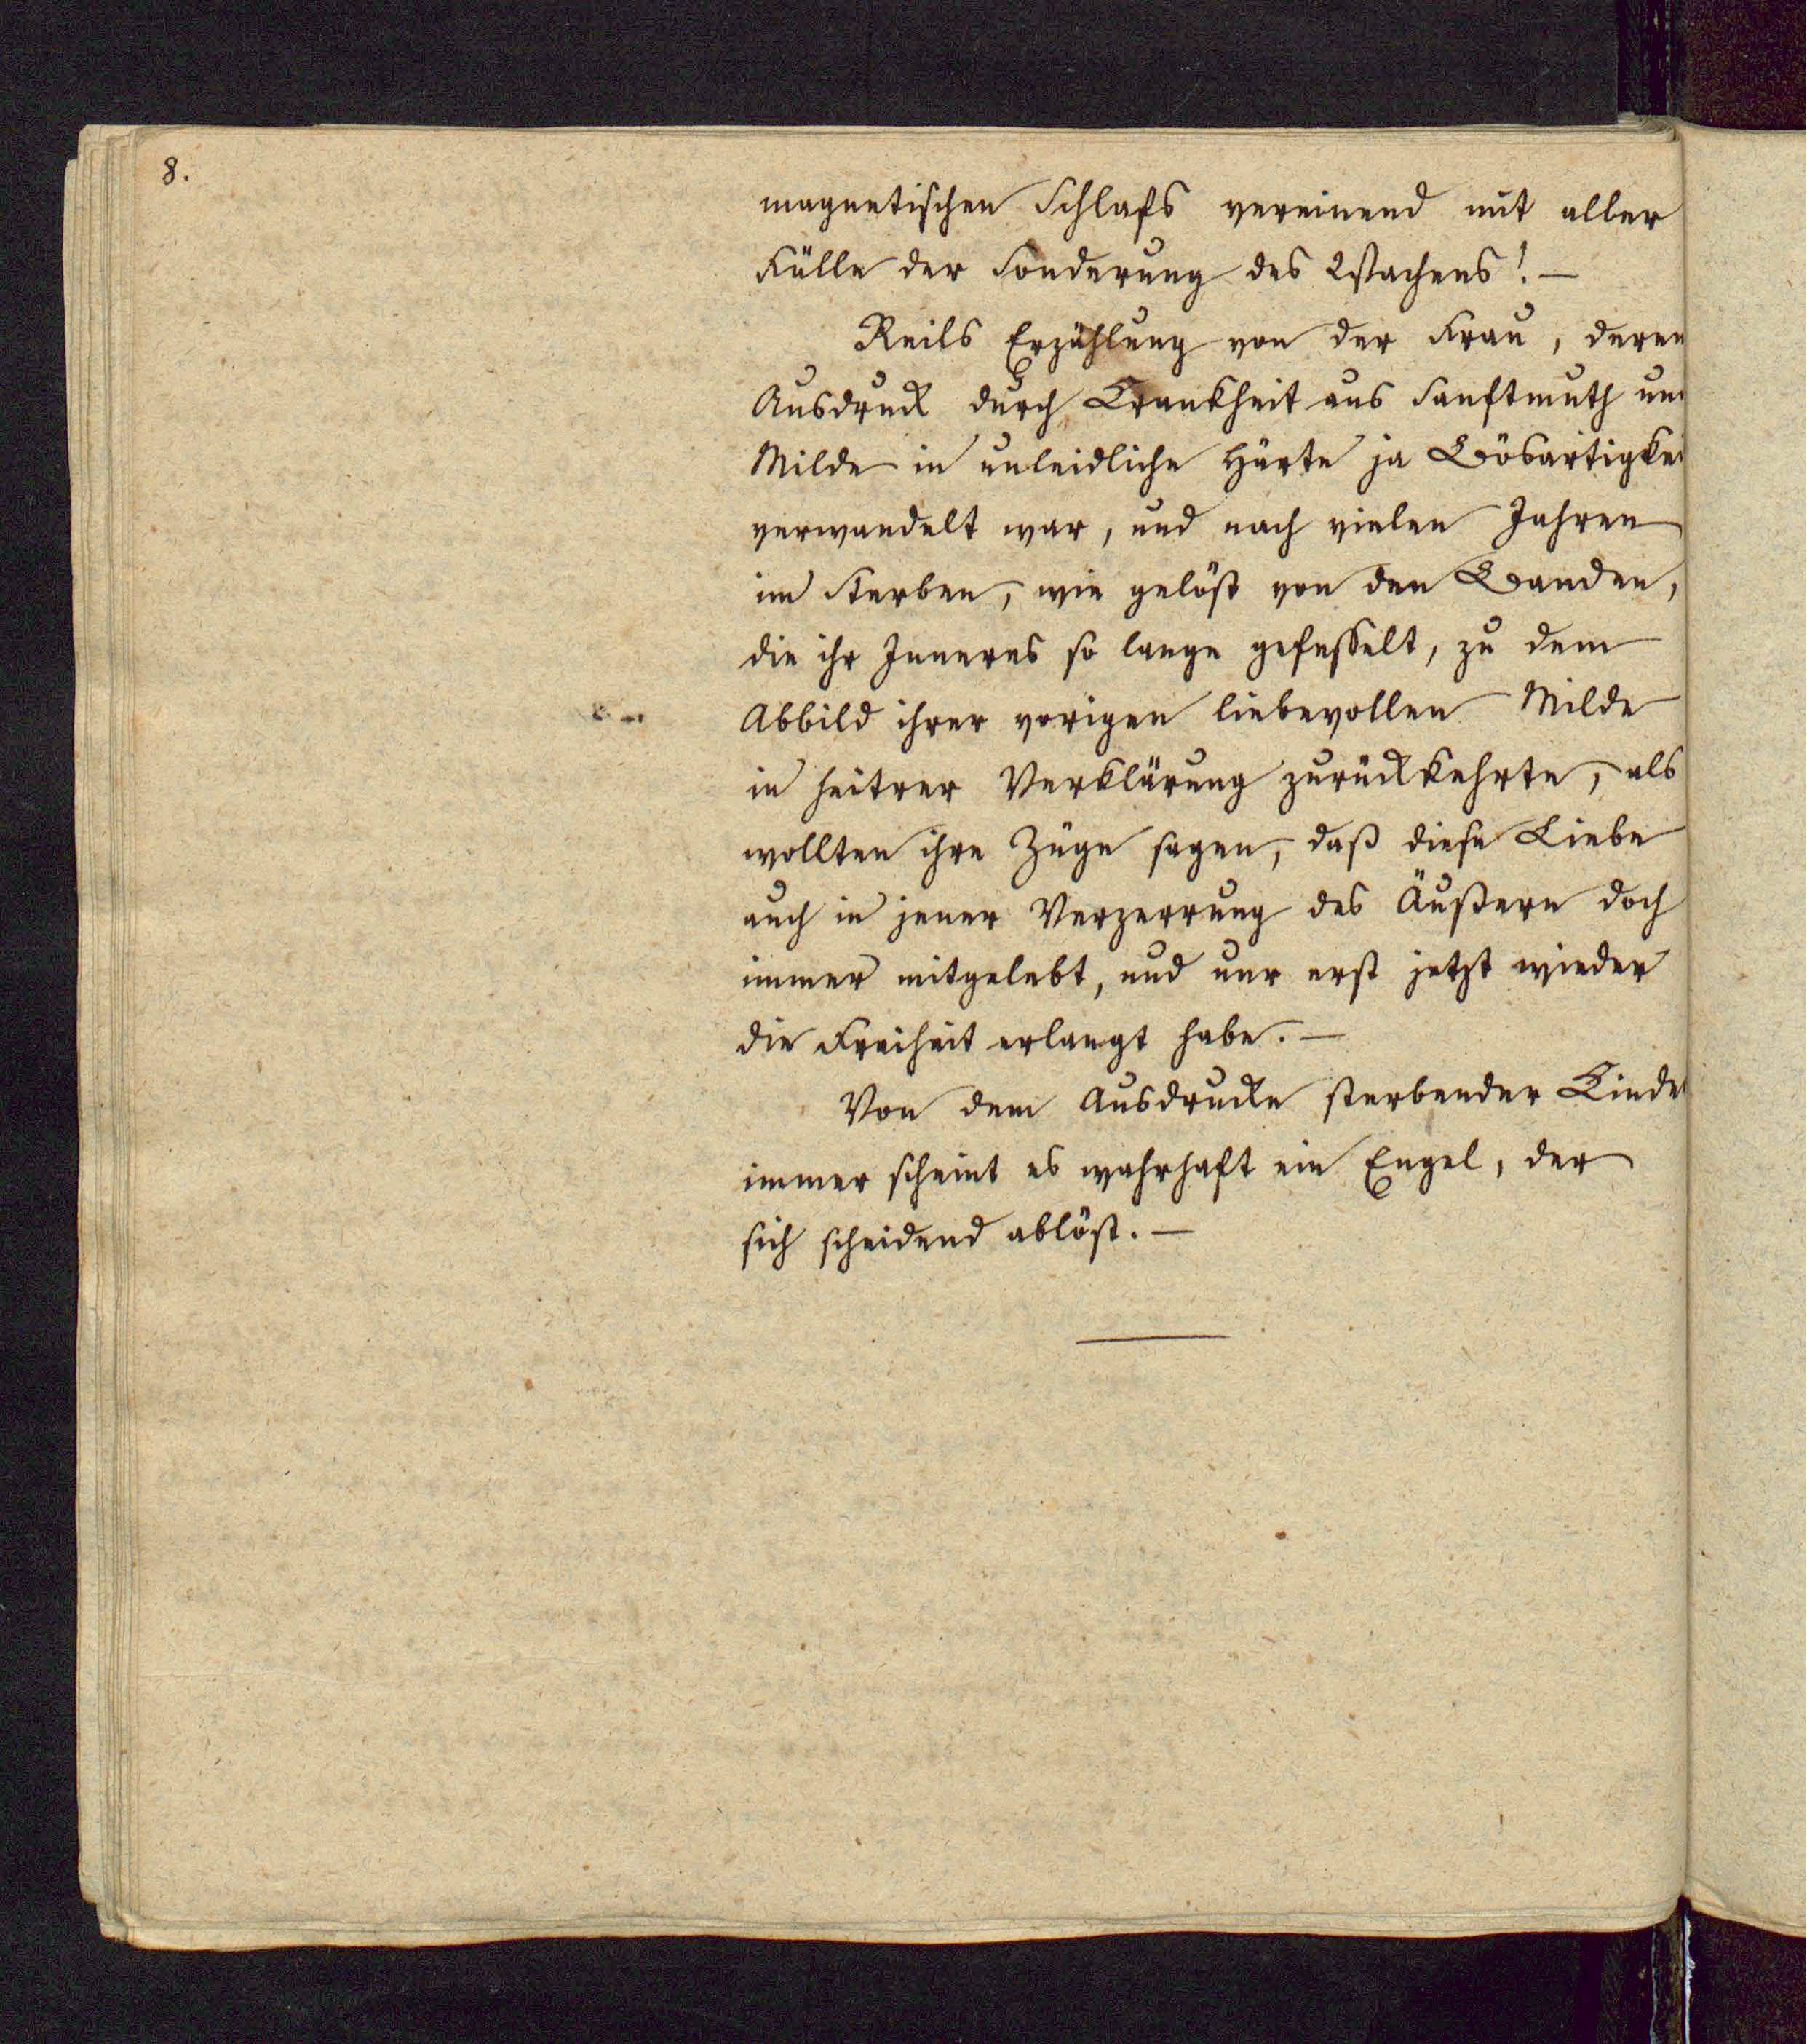 8.
magnetischen Schlafs vereinend mit aller
Fülle der Sonderung des Wachens! —
Reils Erzählung von der Frau, deren
Ausdruck durch Krankheit aus Sanftmuth un
Milde in unleidliche Härte ja Bösartigkei
verwandelt war, und nach vielen Jahren
im Sterben, wie gelöst von den Banden,
die ihr Inneres so lange gefesselt, zu dem
Abbild ihrer vorigen liebevollen Milde
in heitrer Verklärung zurückkehrte, als
wollten ihre Züge sagen, daß diese Liebe
auch in jener Verzerrung des Äußern doch
immer mitgelebt, und nur erst jetzt wieder
die Freiheit erlangt habe. —
Von dem Ausdrucke sterbender Kinde
immer scheint es wahrhaft ein Engel, der
sich scheidend ablöst. —